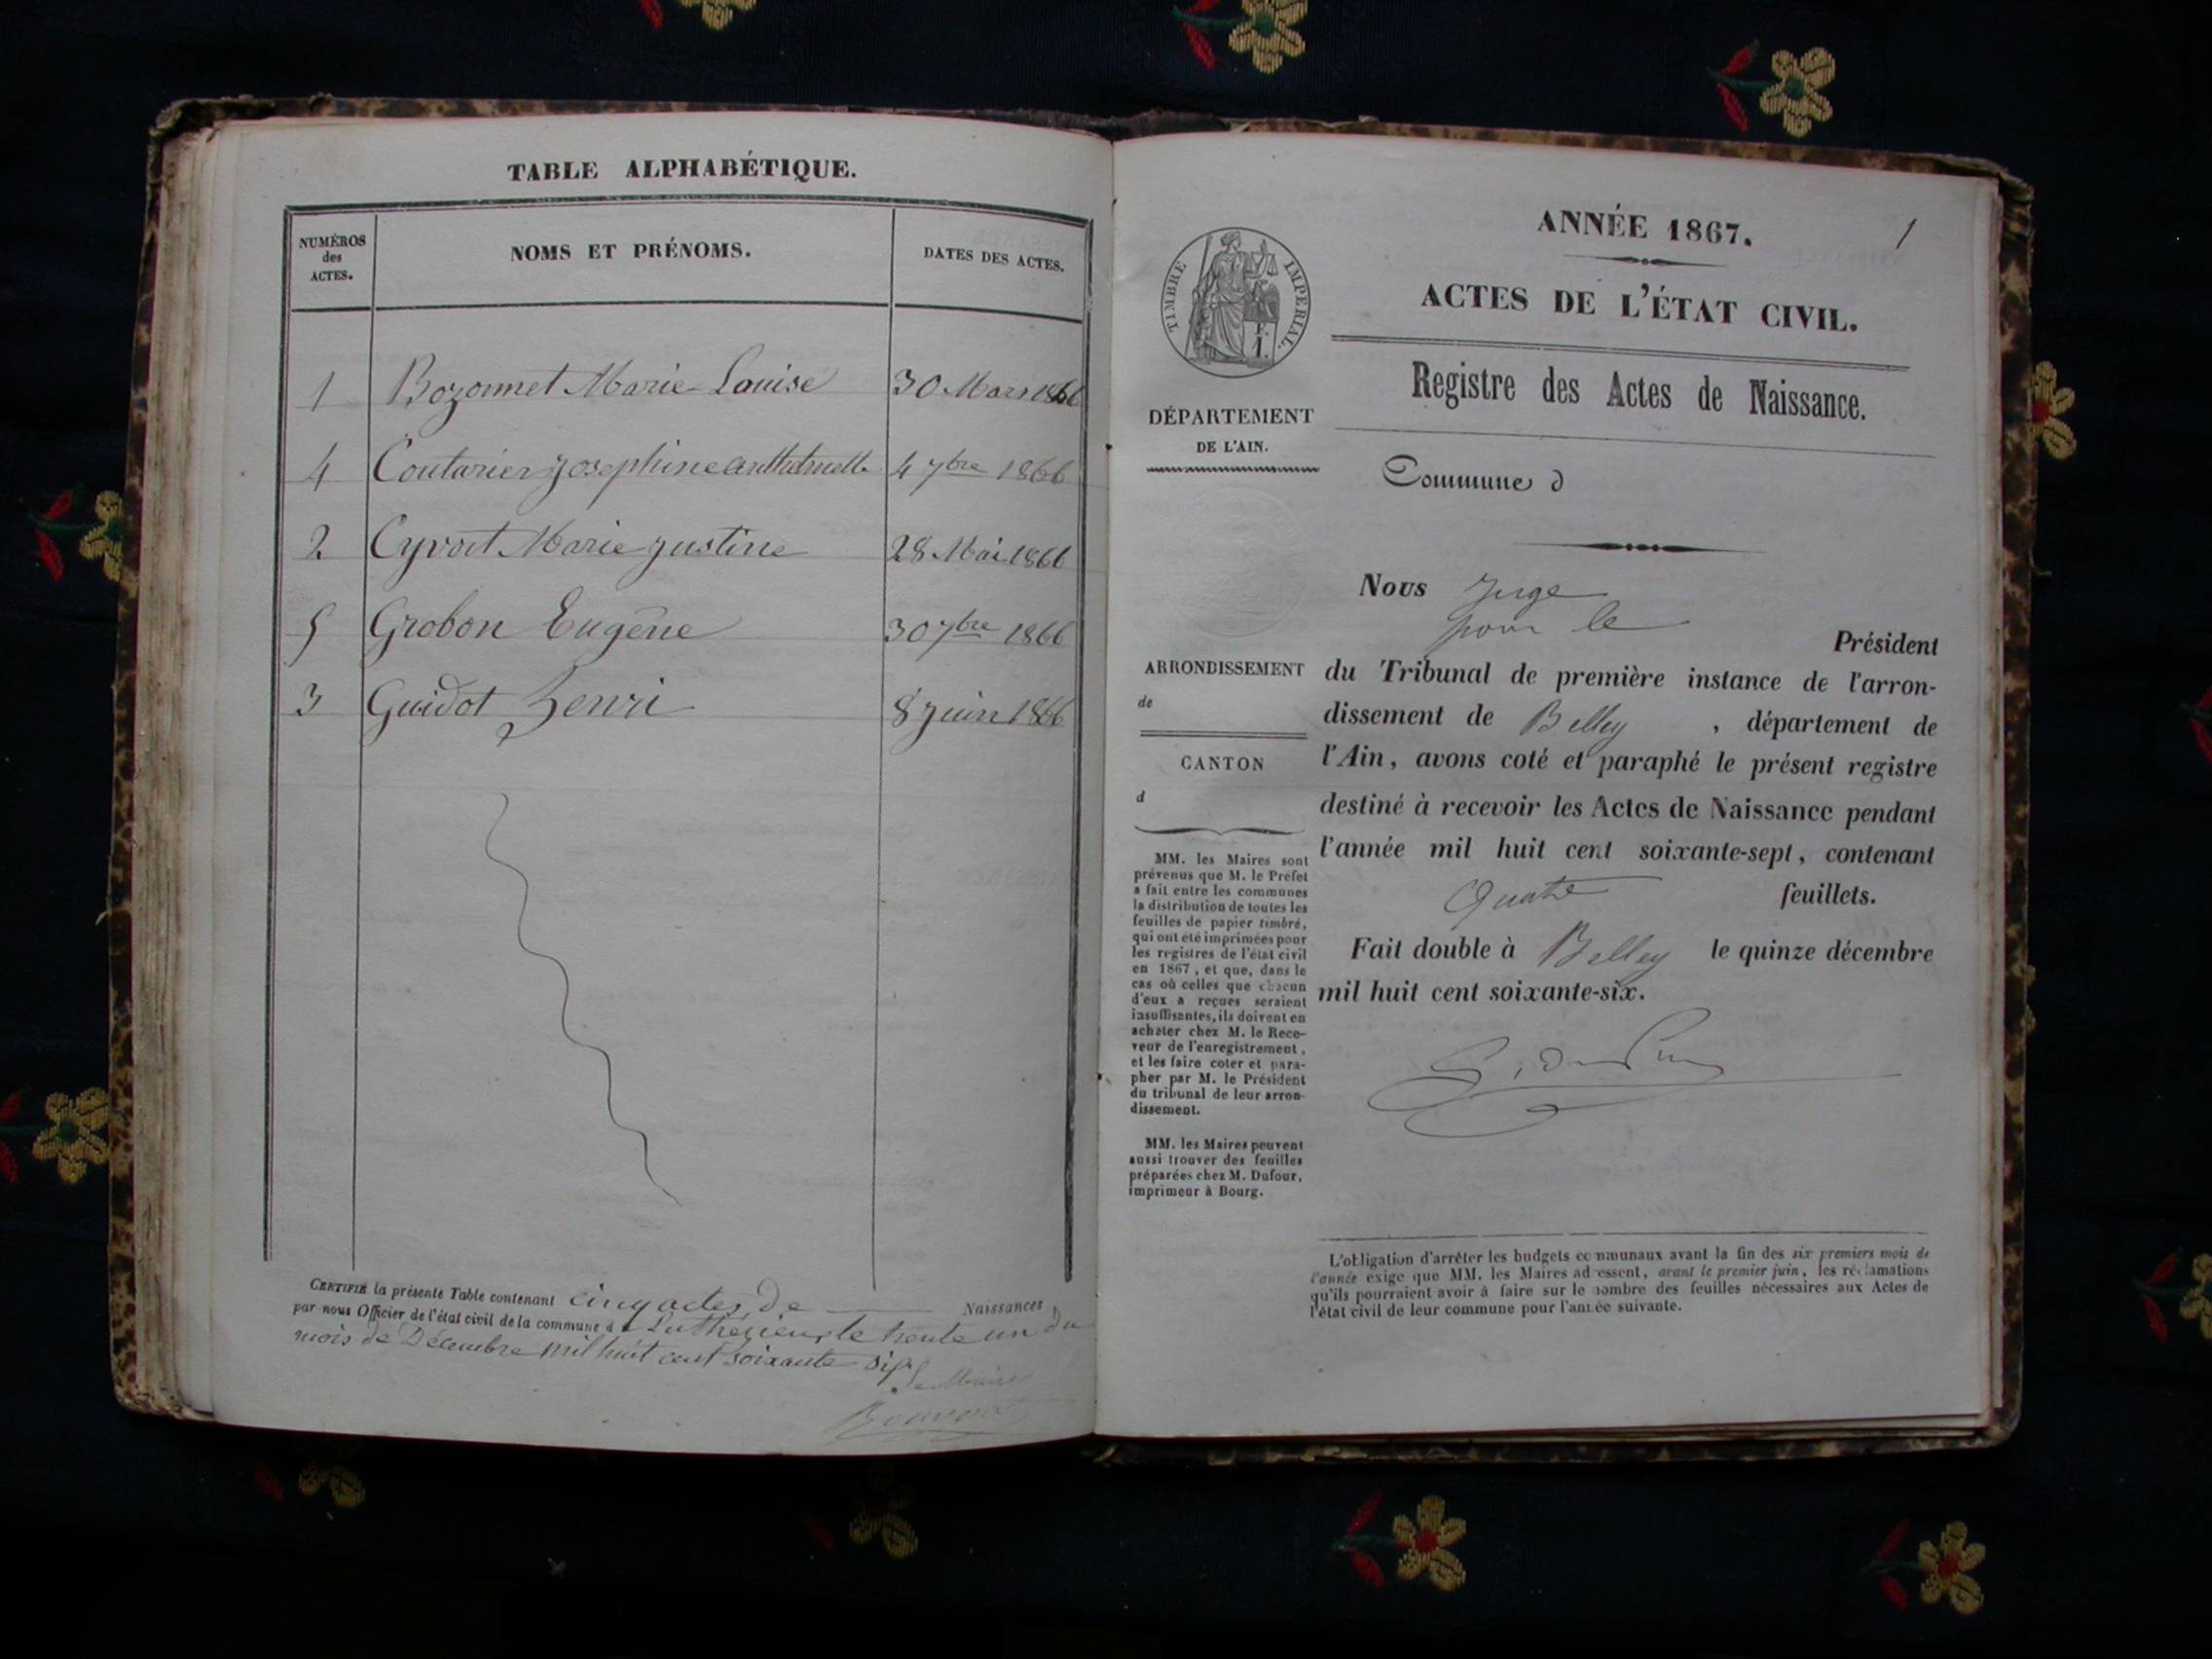 TABLE ALPHABÉTIQUE.
NUMÉROS
des
ACTES.
NOMS ET PRÉNOMS.
DATES DES ACTES.
1 Bozonnet Marie-Louise 30 Mars 1866
4 Couturier Josephine 4 7bre 1866
2 Cyvoct Marie Justine 28 Mai 1866
5 Grobon Eugène 30 7bre 1866
3 Guidot Henri 8 Juin 1866
CERTIFIÉ la présente Table contenant cinq actes de Naissances,
par nous Officier de l'état civil de la commune d Luthézieu, le trente un du
mois de Décembre mil huit cent soixante six.
Le Maire
1
ANNÉE 1867.
ACTES DE L'ÉTAT CIVIL.
Registre des Actes de Naissance.
Commune d
TIMBRE IMPERIAL.
DÉPARTEMENT
DE L'AIN.
ARRONDISSEMENT
de
CANTON
d
MM. les Maires sont
prévenus que M. le Préfet
a fait entre les communes
la distribution de toutes les
feuilles de papier timbré,
qui ont été imprimées pour
les registres de l'état civil
en 1867, et que, dans le
cas où celles que chacun
d'eux a reçues seraient
insuffisantes, ils doivent en
acheter chez M. le Rece-
veur de l'enregistrement,
et les faire coter et para-
pher par M. le Président
du tribunal de leur arron-
dissement.
MM. les Maires peuvent
aussi trouver des feuilles
préparées chez M. Dufour,
imprimeur à Bourg.
Nous Juge
pour le
Président
du Tribunal de première instance de l'arron-
dissement de Belley, département de
l'Ain, avons coté et paraphé le présent registre
destiné à recevoir les Actes de Naissance pendant
l'année mil huit cent soixante-sept, contenant
Quatre feuillets.
Fait double à Belley le quinze décembre
mil huit cent soixante-six.
L'obligation d'arrêter les budgets communaux avant la fin des six premiers mois de
l'année exige que MM. les Maires adressent, avant le premier juin, les réclamations
qu'ils pourraient avoir à faire sur le nombre des feuilles nécessaires aux Actes de
l'état civil de leur commune pour l'année suivante.